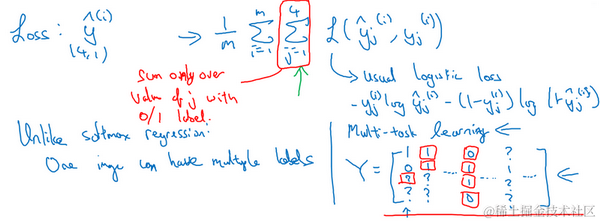 Loss: ŷ^(i) → 1/m Σ_{i=1}^{m} Σ_{j=1}^{4} L(ŷ_j^(i), y_j^(i))
(4,1)
Sum only over
value of j with
0/1 label.
usual logistic loss
- y_j^(i) log ŷ_j^(i) - (1-y_j^(i)) log (1-ŷ_j^(i))
Unlike softmax regression:
One image can have multiple labels
Multi-task learning ←
Y = [ 1 1 0 ?
0 1 ... 1 ... 1 ...
? ? 1 ?
? ? 0 ? ] ←
@稀土掘金技术社区